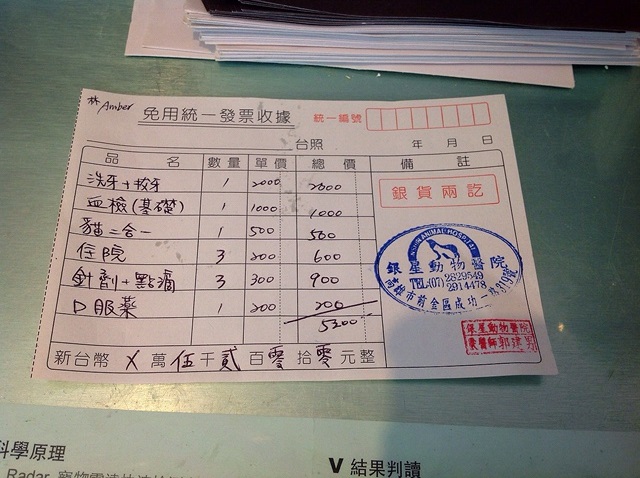 林 Amber
免用統一發票收據 統一編號
台照 年 月 日
品 名 數量 單價 總 價 備 註
洗牙+拔牙 1 2000 2000
血檢(基礎) 1 1000 1000
貓二合一 1 500 500
住院 3 200 600
針劑+點滴 3 300 900
口服藥 1 200 200
5200
新台幣 X 萬 伍 千 貳 百 零 拾 零 元整
銀貨兩訖
ANIMAL HOSPITAL
銀星動物醫院
TEL:(07)2829549
2914478
高雄市前金區成功一路319號
銀星動物醫院
獸醫師
科學原理
Radar
V 結果判讀